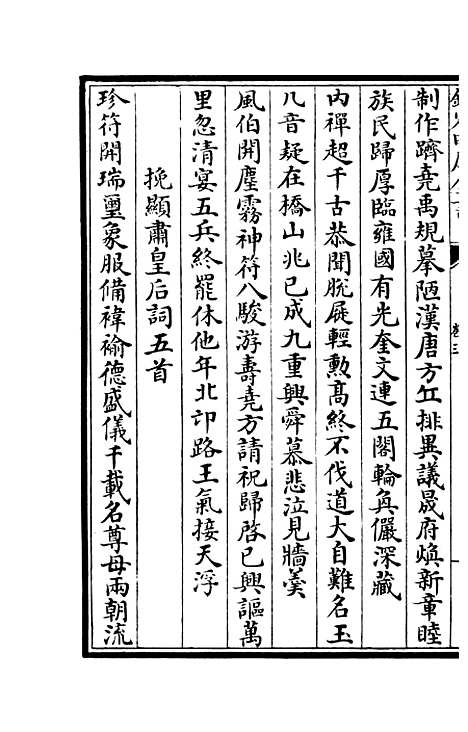 制作躋堯禹規摹陋漢唐方丘排異議晟府煥新章睦
族民歸厚臨雍國有光奎文連五閣輪奐儼深藏
內禪超千古恭聞脫屣輕勲髙終不伐道大自難名玉
几音疑在橋山兆已成九重興舜慕悲泣見牆羹
風伯開塵霧神符八駿游壽堯方請祝歸啓已興謳萬
里忽清宴五兵終罷休他年北卭路王氣接天浮
挽顯肅皇后詞五首
珍符開瑞璽象服備褘褕德盛儀千載名尊母兩朝流